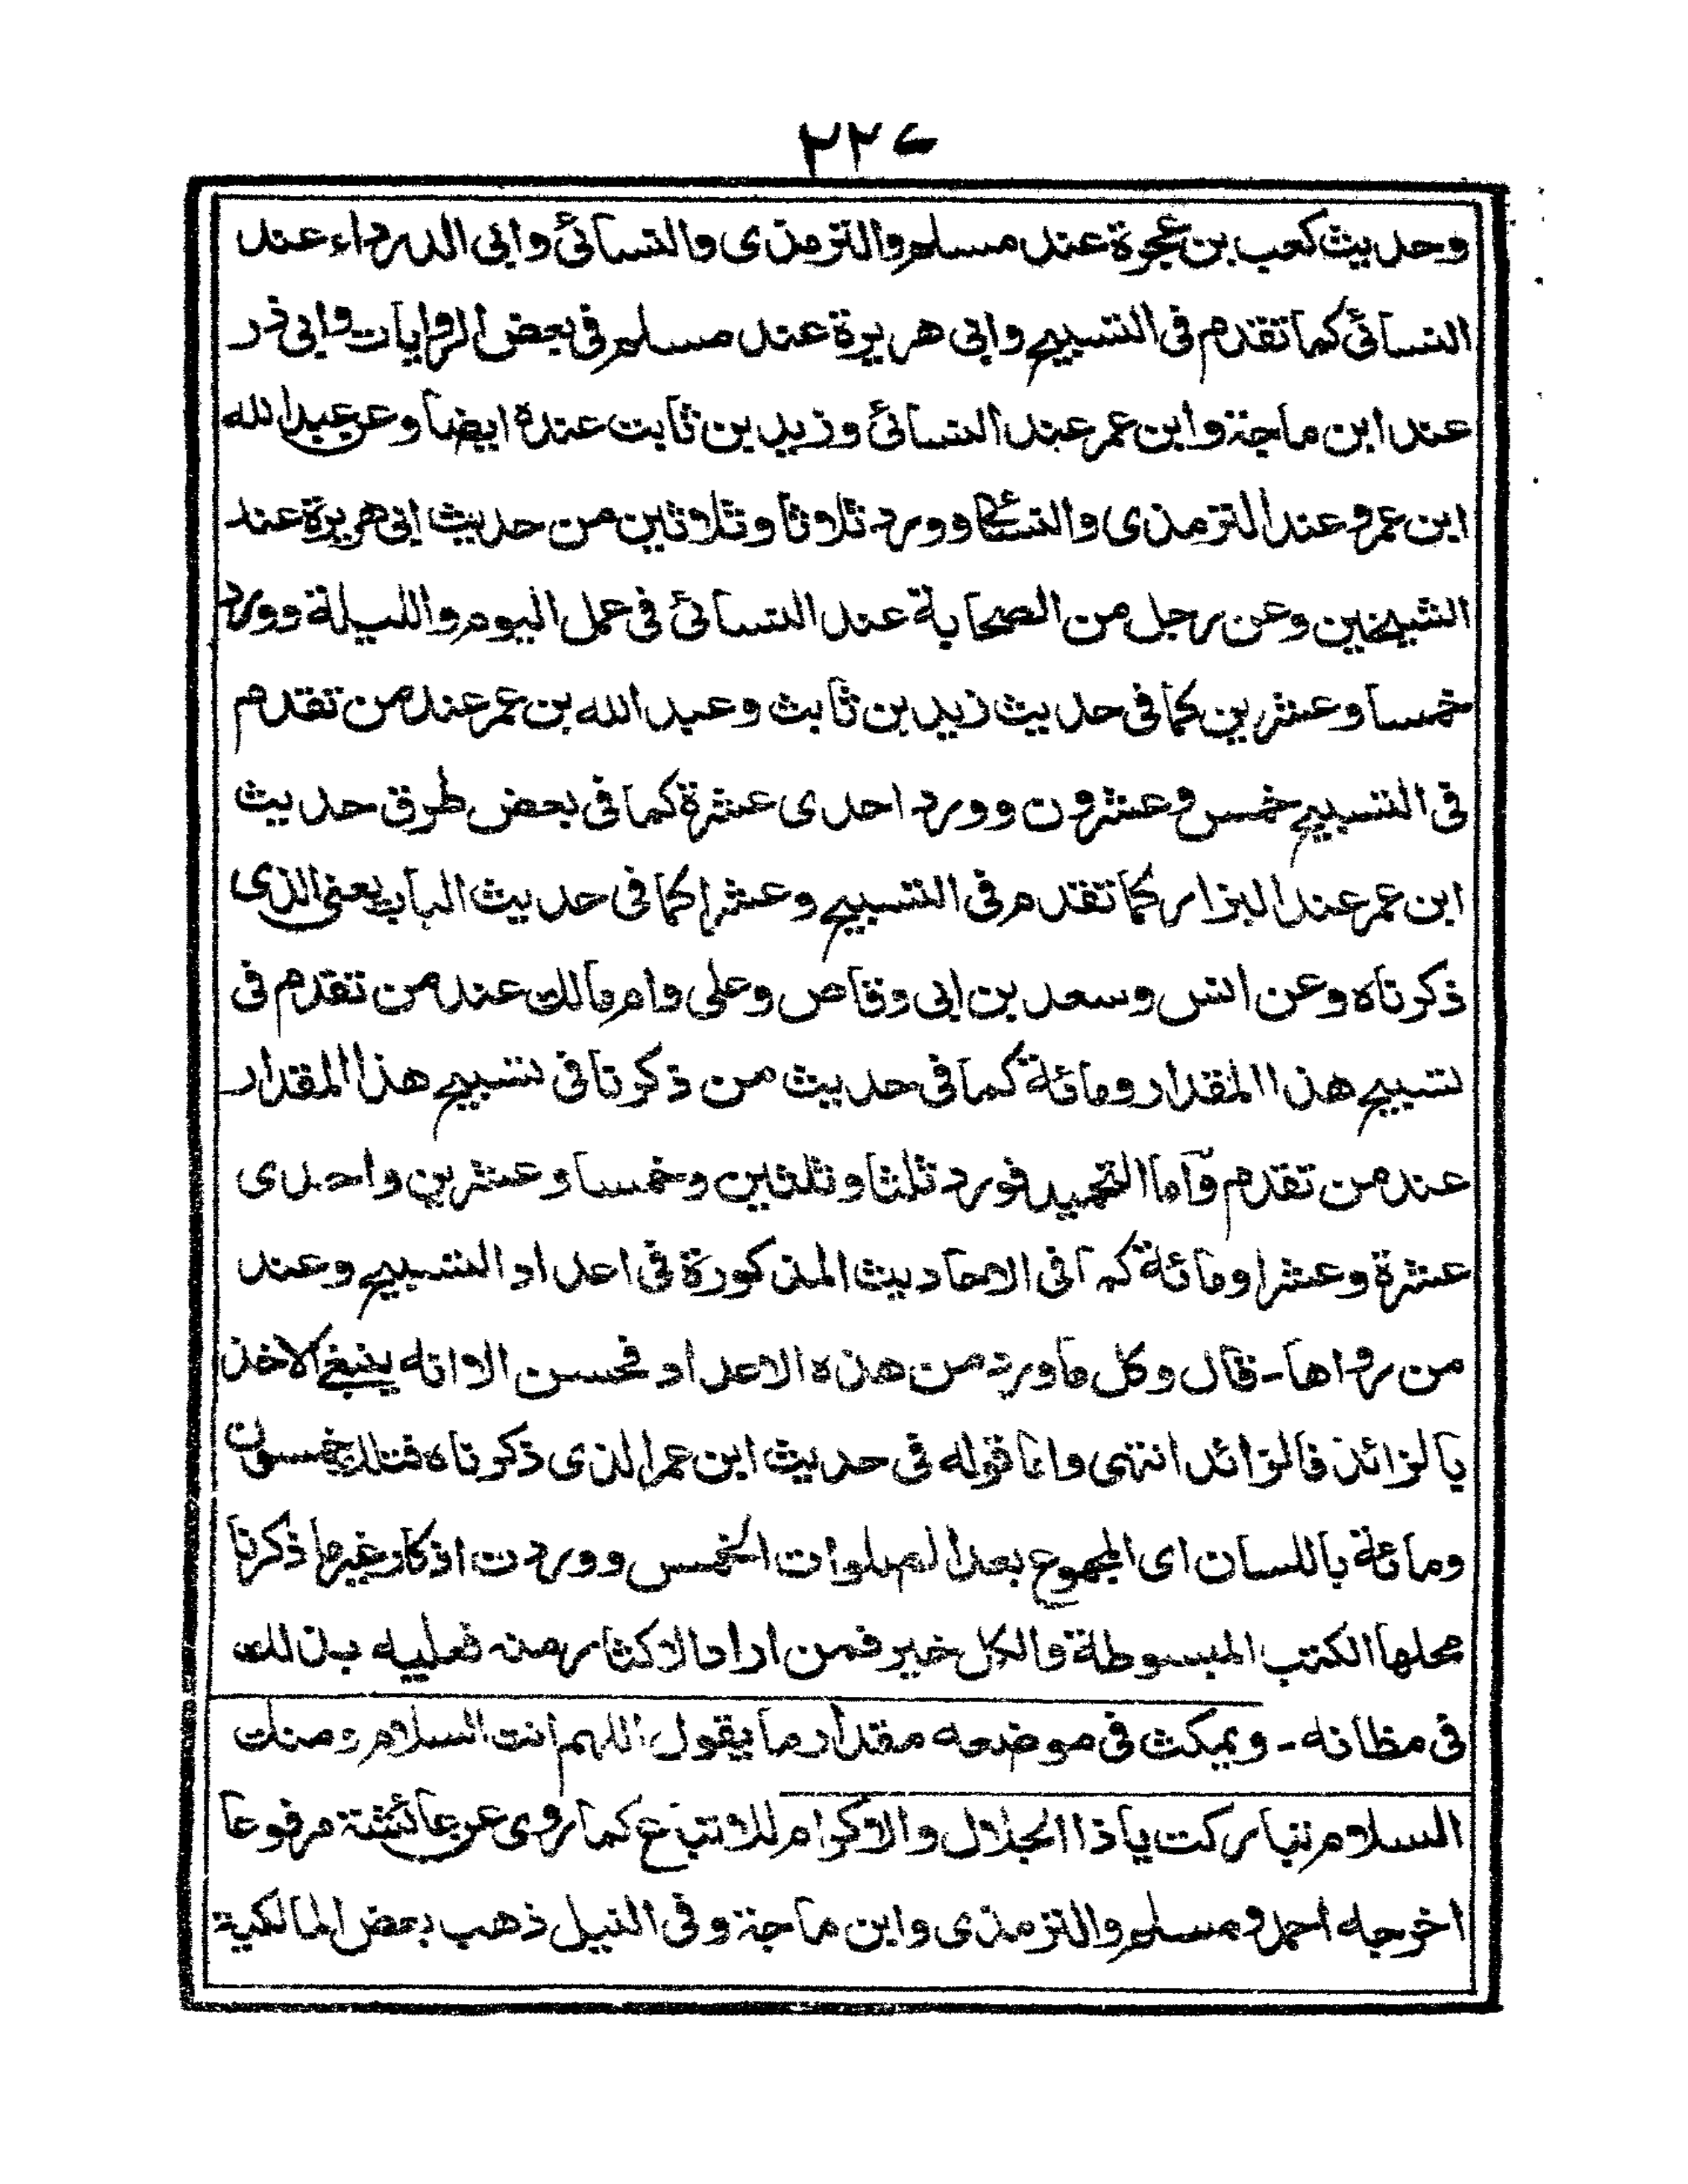 ٢٢٧
وحديث كعب بن عجرة عند مسلم والترمذى والنسائئ وابى الدرداء عند
النسائئ كما تقدم فى التسبيح وابى هريرة عند مسلم فى بعض الروايات وابى ذر
عند ابن ماجة وابن عمر عند النسائئ وزيد بن ثابت عنده ايضا وعن عبد الله
ابن عمرو عند الترمذى والنسائى وورد ثلاثا وثلاثين من حديث ابى هريرة عند
الشيخين وعن رجل من الصحابة عند النسائئ فى عمل اليوم والليلة وورد
خمسا وعشرين كما فى حديث زيد بن ثابث وعبد الله بن عمر عند من تقدم
فى التسبيح خمس وعشرون وورد احدى عشرة كما فى بعض طرق حديث
ابن عمر عند البزار كما تقدم فى التسبيح وعشرا كما فى حديث الباب يعنى الذى
ذكرناه وعن انس وسعد بن ابى وقاص وعلى وام مالك عند من تقدم فى
تسبيح هذا المقدار ومائة كما فى حديث من ذكرنا فى تسبيح هذا المقدار
عند من تقدم وآما التحميد فورد ثلثا وثلثين وخمسا وعشرين واحدى
عشرة وعشرا ومائة كما فى الاحاديث المذكورة فى اعداد التسبيح وعند
من رواها - قال وكل ما ورد من هذه الاعداد فحسن الا انه ينبغى الاخذ
بالزائد فالزائد انتهى واما قوله فى حديث ابن عمر الذى ذكرناه فتلك خمسون
ومائة باللسان اى المجموع بعد الصلوات الخمس ووردت اذكار غير ما ذكرنا
محلها الكتب المبسوطة والكل خير فمن اراد الاكثار منه فعليه بذلك
فى مظانه - ويمكث فى موضعه مقدار ما يقول اللهم انت السلام ومنك
السلام تباركت ياذا الجلال والاكرام للاتباع كما روى عن عائشة مرفوعا
اخرجه احمد ومسلم والترمذى وابن ماجة وفى النيل ذهب بعض المالكية